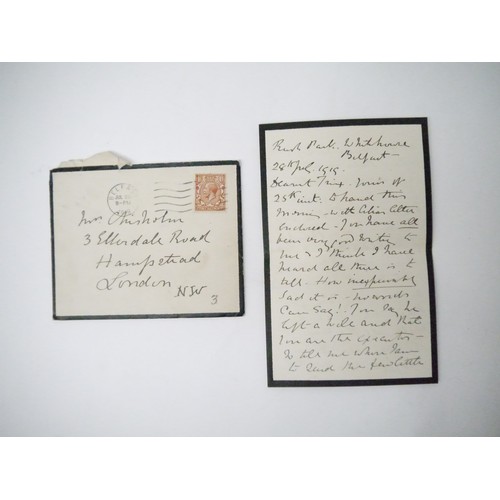 Mrs Chisholm
3 Ellerdale Road
Hampstead
London
NW
3
Rush Park. Whitehouse
Belfast —
28th July 1919.
Dearest Trix. Yours of
25th inst. to hand this
Morning with Letter
enclosed. You have all
been very good writing to
me & I think I have
heard all there is to
tell. How inexpressibly
sad it is - no words
Can say! You say he
left a will and that
you are the executor —
to tell me where I am
to send the few little